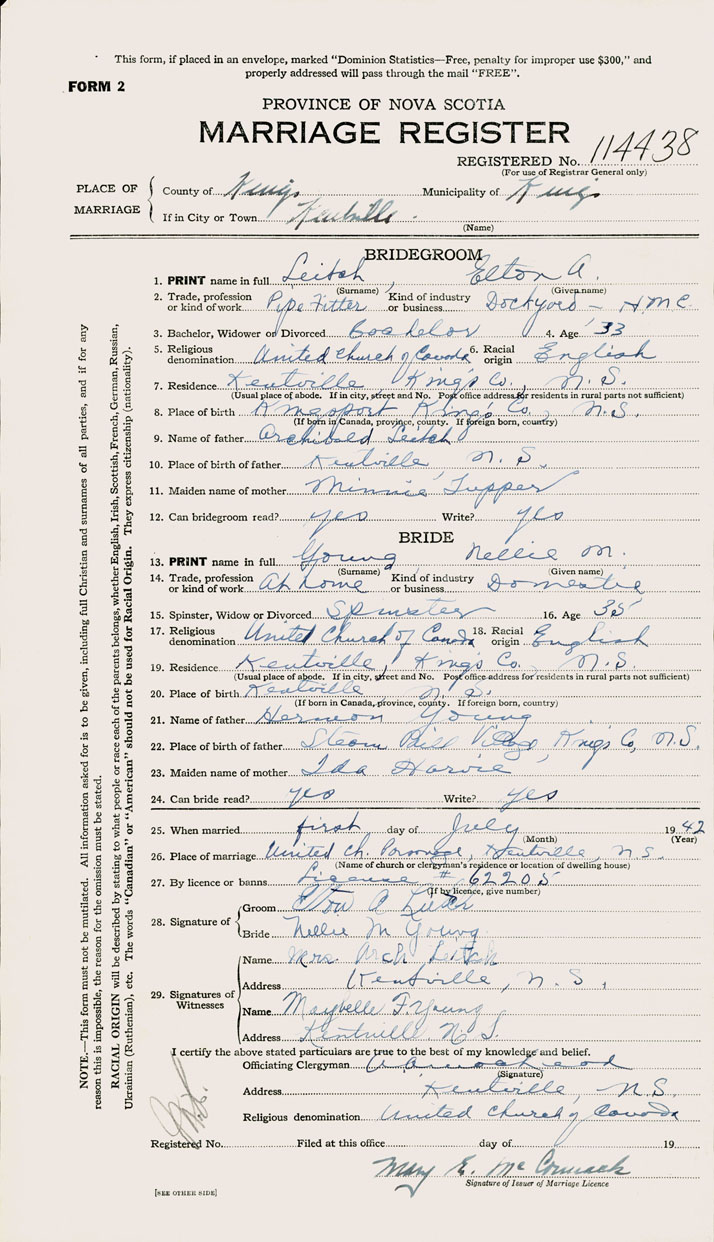 This form, if placed in an envelope, marked "Dominion Statistics—Free, penalty for improper use $300," and
properly addressed will pass through the mail "FREE".
FORM 2
PROVINCE OF NOVA SCOTIA
MARRIAGE REGISTER
REGISTERED No. 114438
(For use of Registrar General only)
PLACE OF MARRIAGE
County of Kings Municipality of Kings
If in City or Town Kentville
(Name)
BRIDEGROOM
1. PRINT name in full Leitch, Elton A.
(Surname) (Given name)
2. Trade, profession or kind of work Pipe Fitter Kind of industry or business Dockyard - H M C
3. Bachelor, Widower or Divorced Bachelor 4. Age 33
5. Religious denomination United Church of Canada 6. Racial origin English
7. Residence Kentville, King's Co., N.S.
(Usual place of abode. If in city, street and No. Post office address for residents in rural parts not sufficient)
8. Place of birth Kingsport King's Co., N.S.
(If born in Canada, province, county. If foreign born, country)
9. Name of father Archibald Leitch
10. Place of birth of father Kentville, N.S.
11. Maiden name of mother Minnie Tupper
12. Can bridegroom read? yes Write? yes
BRIDE
13. PRINT name in full Young Nellie M.
(Surname) (Given name)
14. Trade, profession or kind of work At home Kind of industry or business Domestic
15. Spinster, Widow or Divorced Spinster 16. Age 35
17. Religious denomination United Church of Canada 18. Racial origin English
19. Residence Kentville, King's Co., N.S.
(Usual place of abode. If in city, street and No. Post office address for residents in rural parts not sufficient)
20. Place of birth Kentville N.S.
(If born in Canada, province, county. If foreign born, country)
21. Name of father Hermon Young
22. Place of birth of father Steam Mill Village, King's Co, N.S.
23. Maiden name of mother Ida Harvie
24. Can bride read? yes Write? yes
25. When married first day of July 1942
(Month) (Year)
26. Place of marriage United Ch. Parsonage, Kentville, N.S.
(Name of church or clergyman's residence or location of dwelling house)
27. By licence or banns License # 62205
(If by licence, give number)
28. Signature of
Groom Elton A Leitch
Bride Nellie M Young
29. Signatures of Witnesses
Name Mrs. Arch Leitch
Address Kentville, N.S.,
Name Maybelle F. Young
Address Kentville N.S.
I certify the above stated particulars are true to the best of my knowledge and belief.
Officiating Clergyman
(Signature)
Address Kentville, N.S.
Religious denomination United Church of Canada
Registered No. Filed at this office day of 19
Mary E. McCormack
Signature of Issuer of Marriage Licence
[SEE OTHER SIDE]
NOTE.—This form must not be mutilated. All information asked for is to be given, including full Christian and surnames of all parties, and if for any
reason this is impossible, the reason for the omission must be stated.
RACIAL ORIGIN will be described by stating to what people or race each of the parents belongs, whether English, Irish, Scottish, French, German, Russian,
Ukrainian (Ruthenian), etc. The words "Canadian" or "American" should not be used for Racial Origin. They express citizenship (nationality).